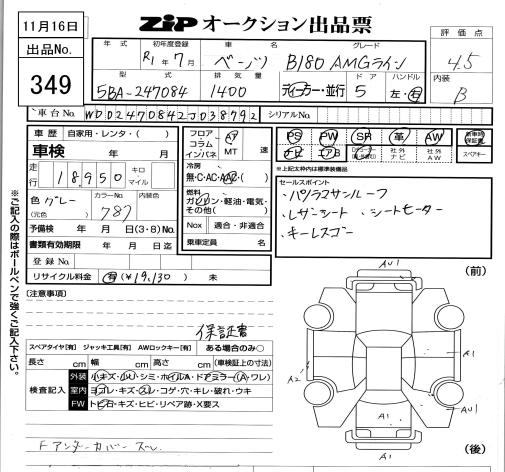 11月16日
ZIP オークション出品票
評価点
4.5
内装
B
出品No.
349
年式 初年度登録 車名 グレード
R1年7月 ベンツ B180 AMGライン
型式 排気量 ドア ハンドル
5BA-247084 1400 ディーラー・並行 5 左・右
車台No. WDD2470842J038792 シリアルNo.
車歴 自家用・レンタ・( )
車検 年 月
走行 18,950 キロ マイル
色 グレー カラーNo. 787 内装色
(元色)
予備検 年 月 日(3・6)No.
書類有効期限 年 月 日迄
登録No.
リサイクル料金 有 (¥19,130) 未
フロア コラム インパネ AT MT 速
冷房
無・C・AC・AAC・( )
燃料
ガソリン・軽油・電気・その他( )
Nox 適合・非適合
乗車定員 名
PS PW SR 革 AW 新車時保証書
ナビ エアB 社外ナビ 社外AW スペアキー
※上記太枠内は標準装備品
セールスポイント
・パノラマサンルーフ
・レザーシート ・シートヒーター
・キーレスゴー
※ご記入の際はボールペンで強くご記入下さい。
(注意事項)
保証書
スペアタイヤ[有] ジャッキ工具[有] AWロックキー[有] ある場合のみ○
長さ cm 幅 cm 高さ cm (車検証上の寸法)
検査記入
外装 小キズ・小U・シミ・ホイルA・ドアミラー(A・ワレ)
室内 ヨゴレ・キズ・スレ・コゲ・穴・キレ・破れ・ウキ
FW トビ石・キズ・ヒビ・リペア跡・X要ス
Fアンダーカバースレ
(前)
AU1
A1
A2
AU1
A1
A1
(後)